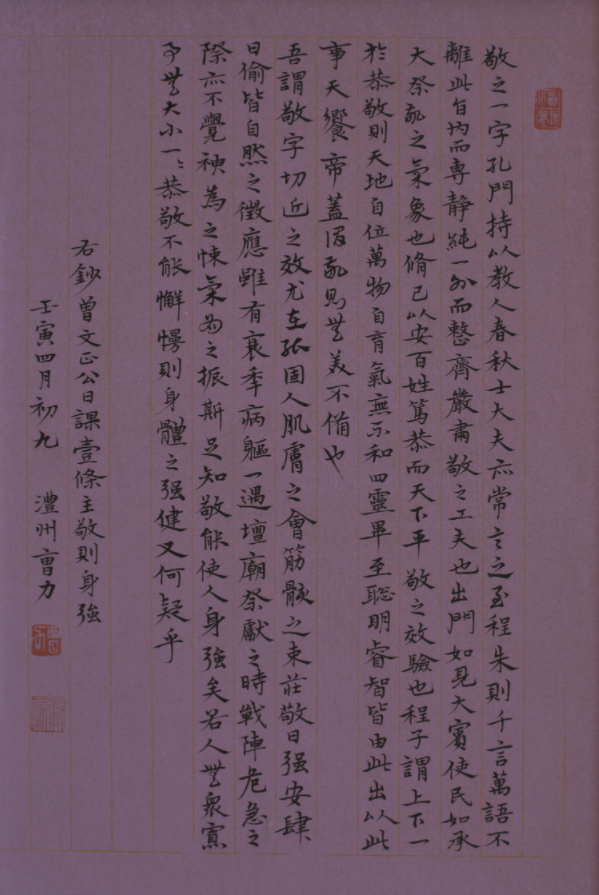 敬之一字孔門持以教人春秋士大夫亦常言之至程朱則千言萬語不
離此旨内而專静純一外而整齊嚴肅敬之工夫也出門如見大賓使民如承
大祭敬之氣象也脩己以安百姓篤恭而天下平敬之效驗也程子謂上下一
於恭敬則天地自位萬物自育氣無不和四靈畢至聪明睿智皆由此出以此
事天饗帝蓋謂敬則無美不備也
吾謂敬字切近之效尤在能固人肌膚之會筋骸之束莊敬日强安肆
日偷皆自然之徵應雖有衰年病軀一遇壇廟祭獻之時戰陣危急之
際亦不覺神為之悚氣為之振斯足知敬能使人身強矣若人無衆寡
事無大小一一恭敬不能懈慢則身體之强健又何疑乎
右鈔曾文正公日課壹條主敬則身強
壬寅四月初九 澧州曹力